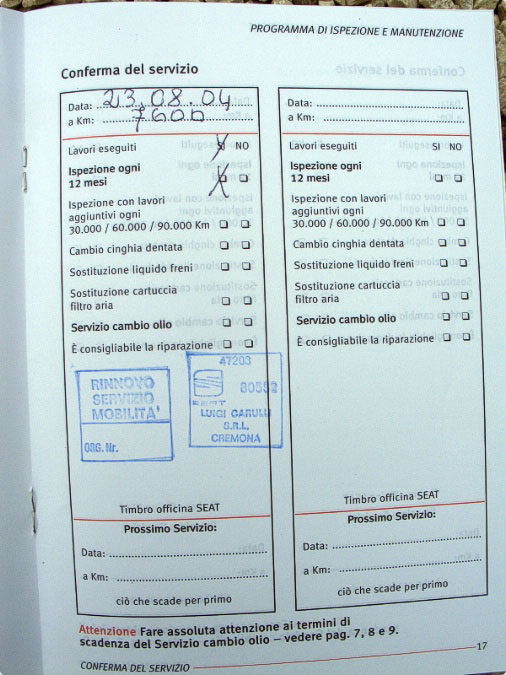 PROGRAMMA DI ISPEZIONE E MANUTENZIONE
Conferma del servizio
Data: 23.08.04
a Km: 7600
Lavori eseguiti SI NO
Ispezione ogni
12 mesi
Ispezione con lavori
aggiuntivi ogni
30.000 / 60.000 / 90.000 Km
Cambio cinghia dentata
Sostituzione liquido freni
Sostituzione cartuccia
filtro aria
Servizio cambio olio
È consigliabile la riparazione
RINNOVO
SERVIZIO
MOBILITA'
ORG. Nr.
47203
80552
SEAT
LUIGI CARULLI
S.R.L.
CREMONA
Timbro officina SEAT
Prossimo Servizio:
Data:
a Km:
ciò che scade per primo
Data:
a Km:
Lavori eseguiti SI NO
Ispezione ogni
12 mesi
Ispezione con lavori
aggiuntivi ogni
30.000 / 60.000 / 90.000 Km
Cambio cinghia dentata
Sostituzione liquido freni
Sostituzione cartuccia
filtro aria
Servizio cambio olio
È consigliabile la riparazione
Timbro officina SEAT
Prossimo Servizio:
Data:
a Km:
ciò che scade per primo
Attenzione Fare assoluta attenzione ai termini di
scadenza del Servizio cambio olio – vedere pag. 7, 8 e 9.
CONFERMA DEL SERVIZIO 17